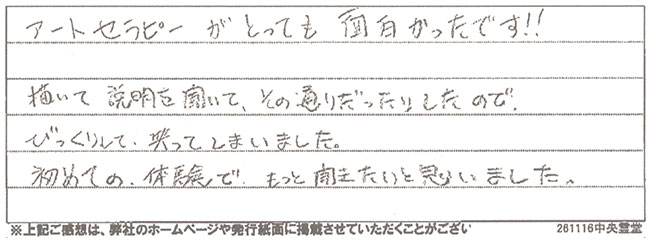 アートセラピーがとっても面白かったです!!
描いて説明を聞いて、その通りだったりしたので、
びっくりして、笑ってしまいました。
初めての、体験で、もっと聞きたいと思いました。
※上記ご感想は、弊社のホームページや発行紙面に掲載させていただくことがござい
261116中央霊堂